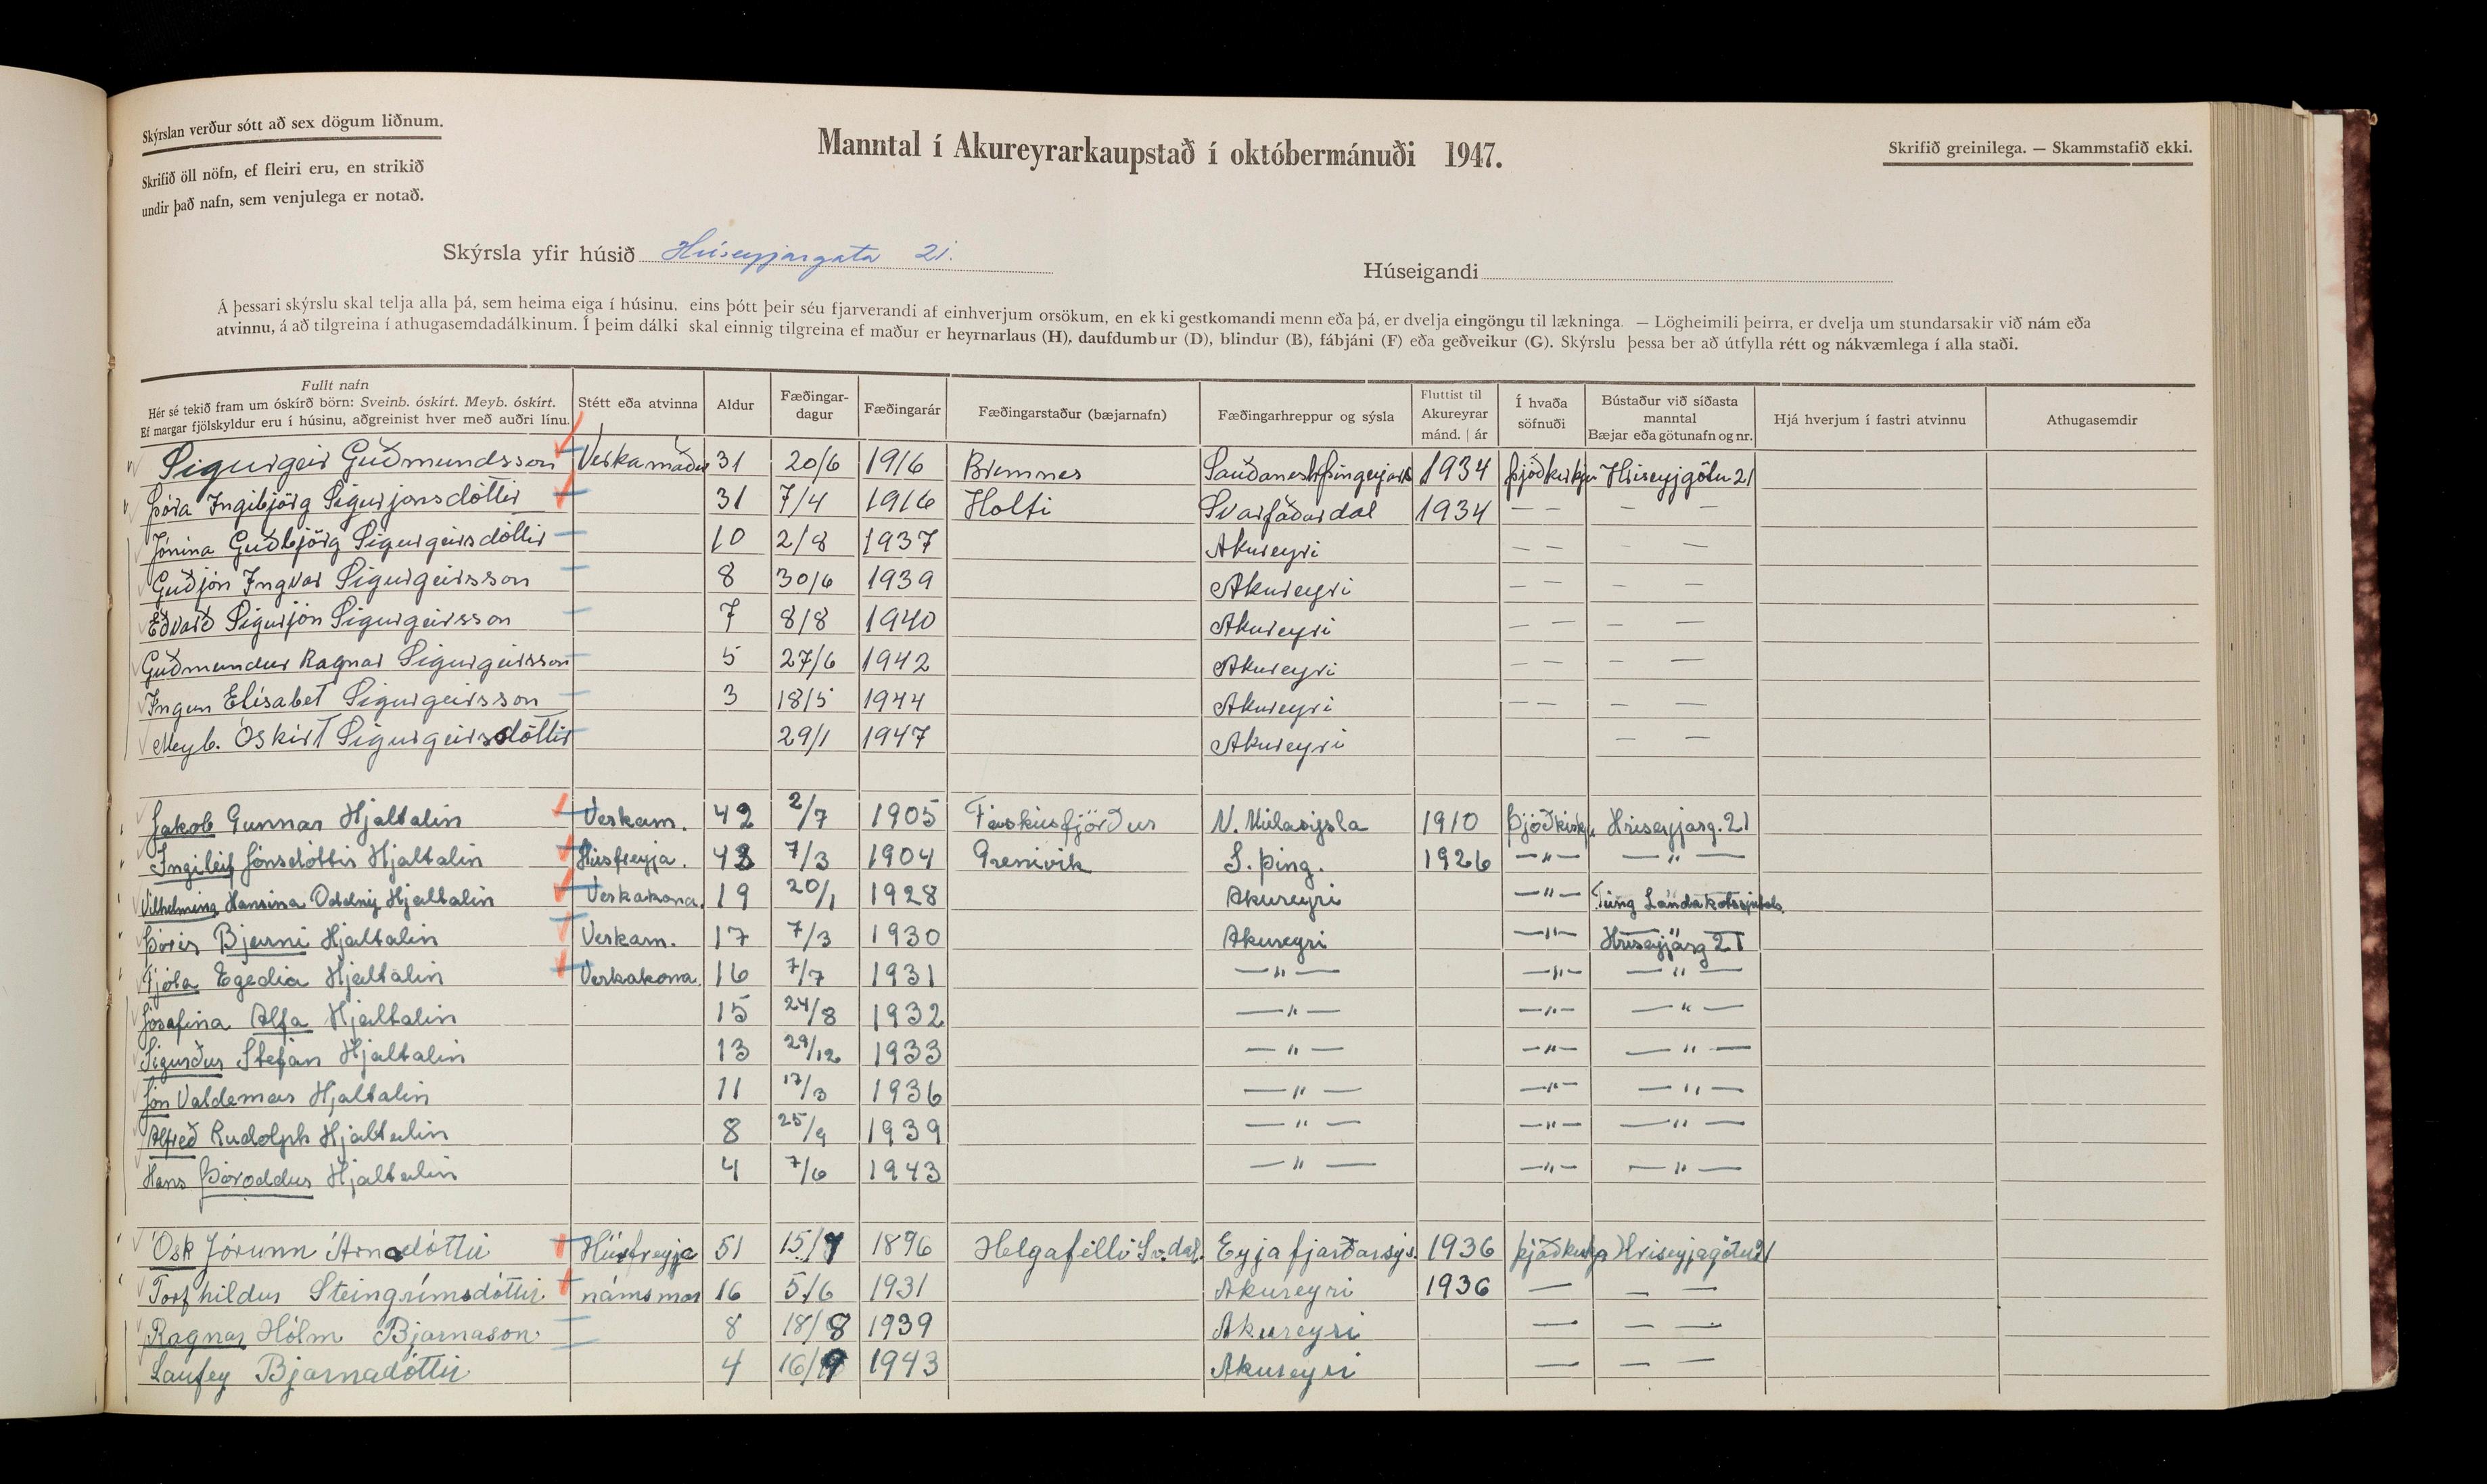 Skýrslan verður sótt að sex dögum liðnum.
Skrifið öll nöfn, ef fleiri eru, en strikið
undir það nafn, sem venjulega er notað.
Manntal í Akureyrarkaupstað í októbermánuði 1947.
Skrifið greinilega. — Skammstafið ekki.
Skýrsla yfir húsið Hríseyjargata 21.
Húseigandi
Á þessari skýrslu skal telja alla þá, sem heima eiga í húsinu, eins þótt þeir séu fjarverandi af einhverjum orsökum, en ekki gestkomandi menn eða þá, er dvelja eingöngu til lækninga. — Lögheimili þeirra, er dvelja um stundarsakir við nám eða
atvinnu, á að tilgreina í athugasemdadálkinum. Í þeim dálki skal einnig tilgreina ef maður er heyrnarlaus (H), daufdumbur (D), blindur (B), fábjáni (F) eða geðveikur (G). Skýrslu þessa ber að útfylla rétt og nákvæmlega í alla staði.
Fullt nafn
Hér sé tekið fram um óskírð börn: Sveinb. óskírt. Meyb. óskírt.
Ef margar fjölskyldur eru í húsinu, aðgreinist hver með auðri línu.
Stétt eða atvinna
Aldur
Fæðingar-
dagur
Fæðingarár
Fæðingarstaður (bæjarnafn)
Fæðingarhreppur og sýsla
Fluttist til
Akureyrar
mánd. | ár
Í hvaða
söfnuði
Bústaður við síðasta
manntal
Bæjar eða götunafn og nr.
Hjá hverjum í fastri atvinnu
Athugasemdir
Sigurgeir Guðmundsson Verkamaður 31 20/6 1916 Bremnes Sauðanesh 1934 þjóðkirkju Hríseyjgötu 21
Þóra Ingibjörg Sigurjónsdóttir 31 7/4 1916 Holti Svarfaðardal 1934 — — — —
Jónína Guðbjörg Sigurgeirsdóttir 10 2/8 1937 Akureyri — — — —
Guðjón Ingvar Sigurgeirsson 8 30/6 1939 Akureyri — — — —
Eðvarð Sigurjón Sigurgeirsson 7 8/8 1940 Akureyri — — — —
Guðmundur Ragnar Sigurgeirsson 5 27/6 1942 Akureyri — — — —
Ingun Elísabet Sigurgeirsson 3 18/5 1944 Akureyri — — — —
Meyb. Óskírt Sigurgeirsdóttir 29/1 1947 Akureyri — —
Jakob Gunnar Hjaltalín Verkam. 42 2/7 1905 Fáskúsfjörður N. Múlasýsla 1910 Þjóðkirkju Hríseyjarg. 21
Ingileif Jónsdóttir Hjaltalín Húsfreyja. 43 7/3 1904 Grenivík S. þing. 1926 —"— —"—
Vilhelmina Hansina Oddný Hjaltalín Verkakona. 19 20/1 1928 Akureyri —"— Landakotsspítala.
Þórir Bjarni Hjaltalín Verkam. 17 7/3 1930 Akureyri —"— Hríseyjarg 21
Fjóla Egedia Hjaltalín Verkakona. 16 7/7 1931 —"— —"— —"—
Jósafína Alfa Hjaltalín 15 24/8 1932 —"— —"— —"—
Sigurður Stefán Hjaltalín 13 29/12 1933 —"— —"— —"—
Jón Valdemar Hjaltalín 11 17/3 1936 —"— —"— —"—
Alfreð Rudolph Hjaltalín 8 25/9 1939 —"— —"— —"—
Hans Þóroddur Hjaltalín 4 7/6 1943 —"— —"— —"—
Ósk Jórunn Árnadóttir Húsfreyja 51 15/7 1896 Helgafelli Sv.dal. Eyjafjarðarsýs. 1936 þjóðkirkja Hríseyjagötu 21
Torfhildur Steingrímsdóttir námsmær 16 5/6 1931 Akureyri 1936 — — —
Ragnar Hólm Bjarnason 8 18/8 1939 Akureyri — — —
Laufey Bjarnadóttir 4 16/9 1943 Akureyri — — —